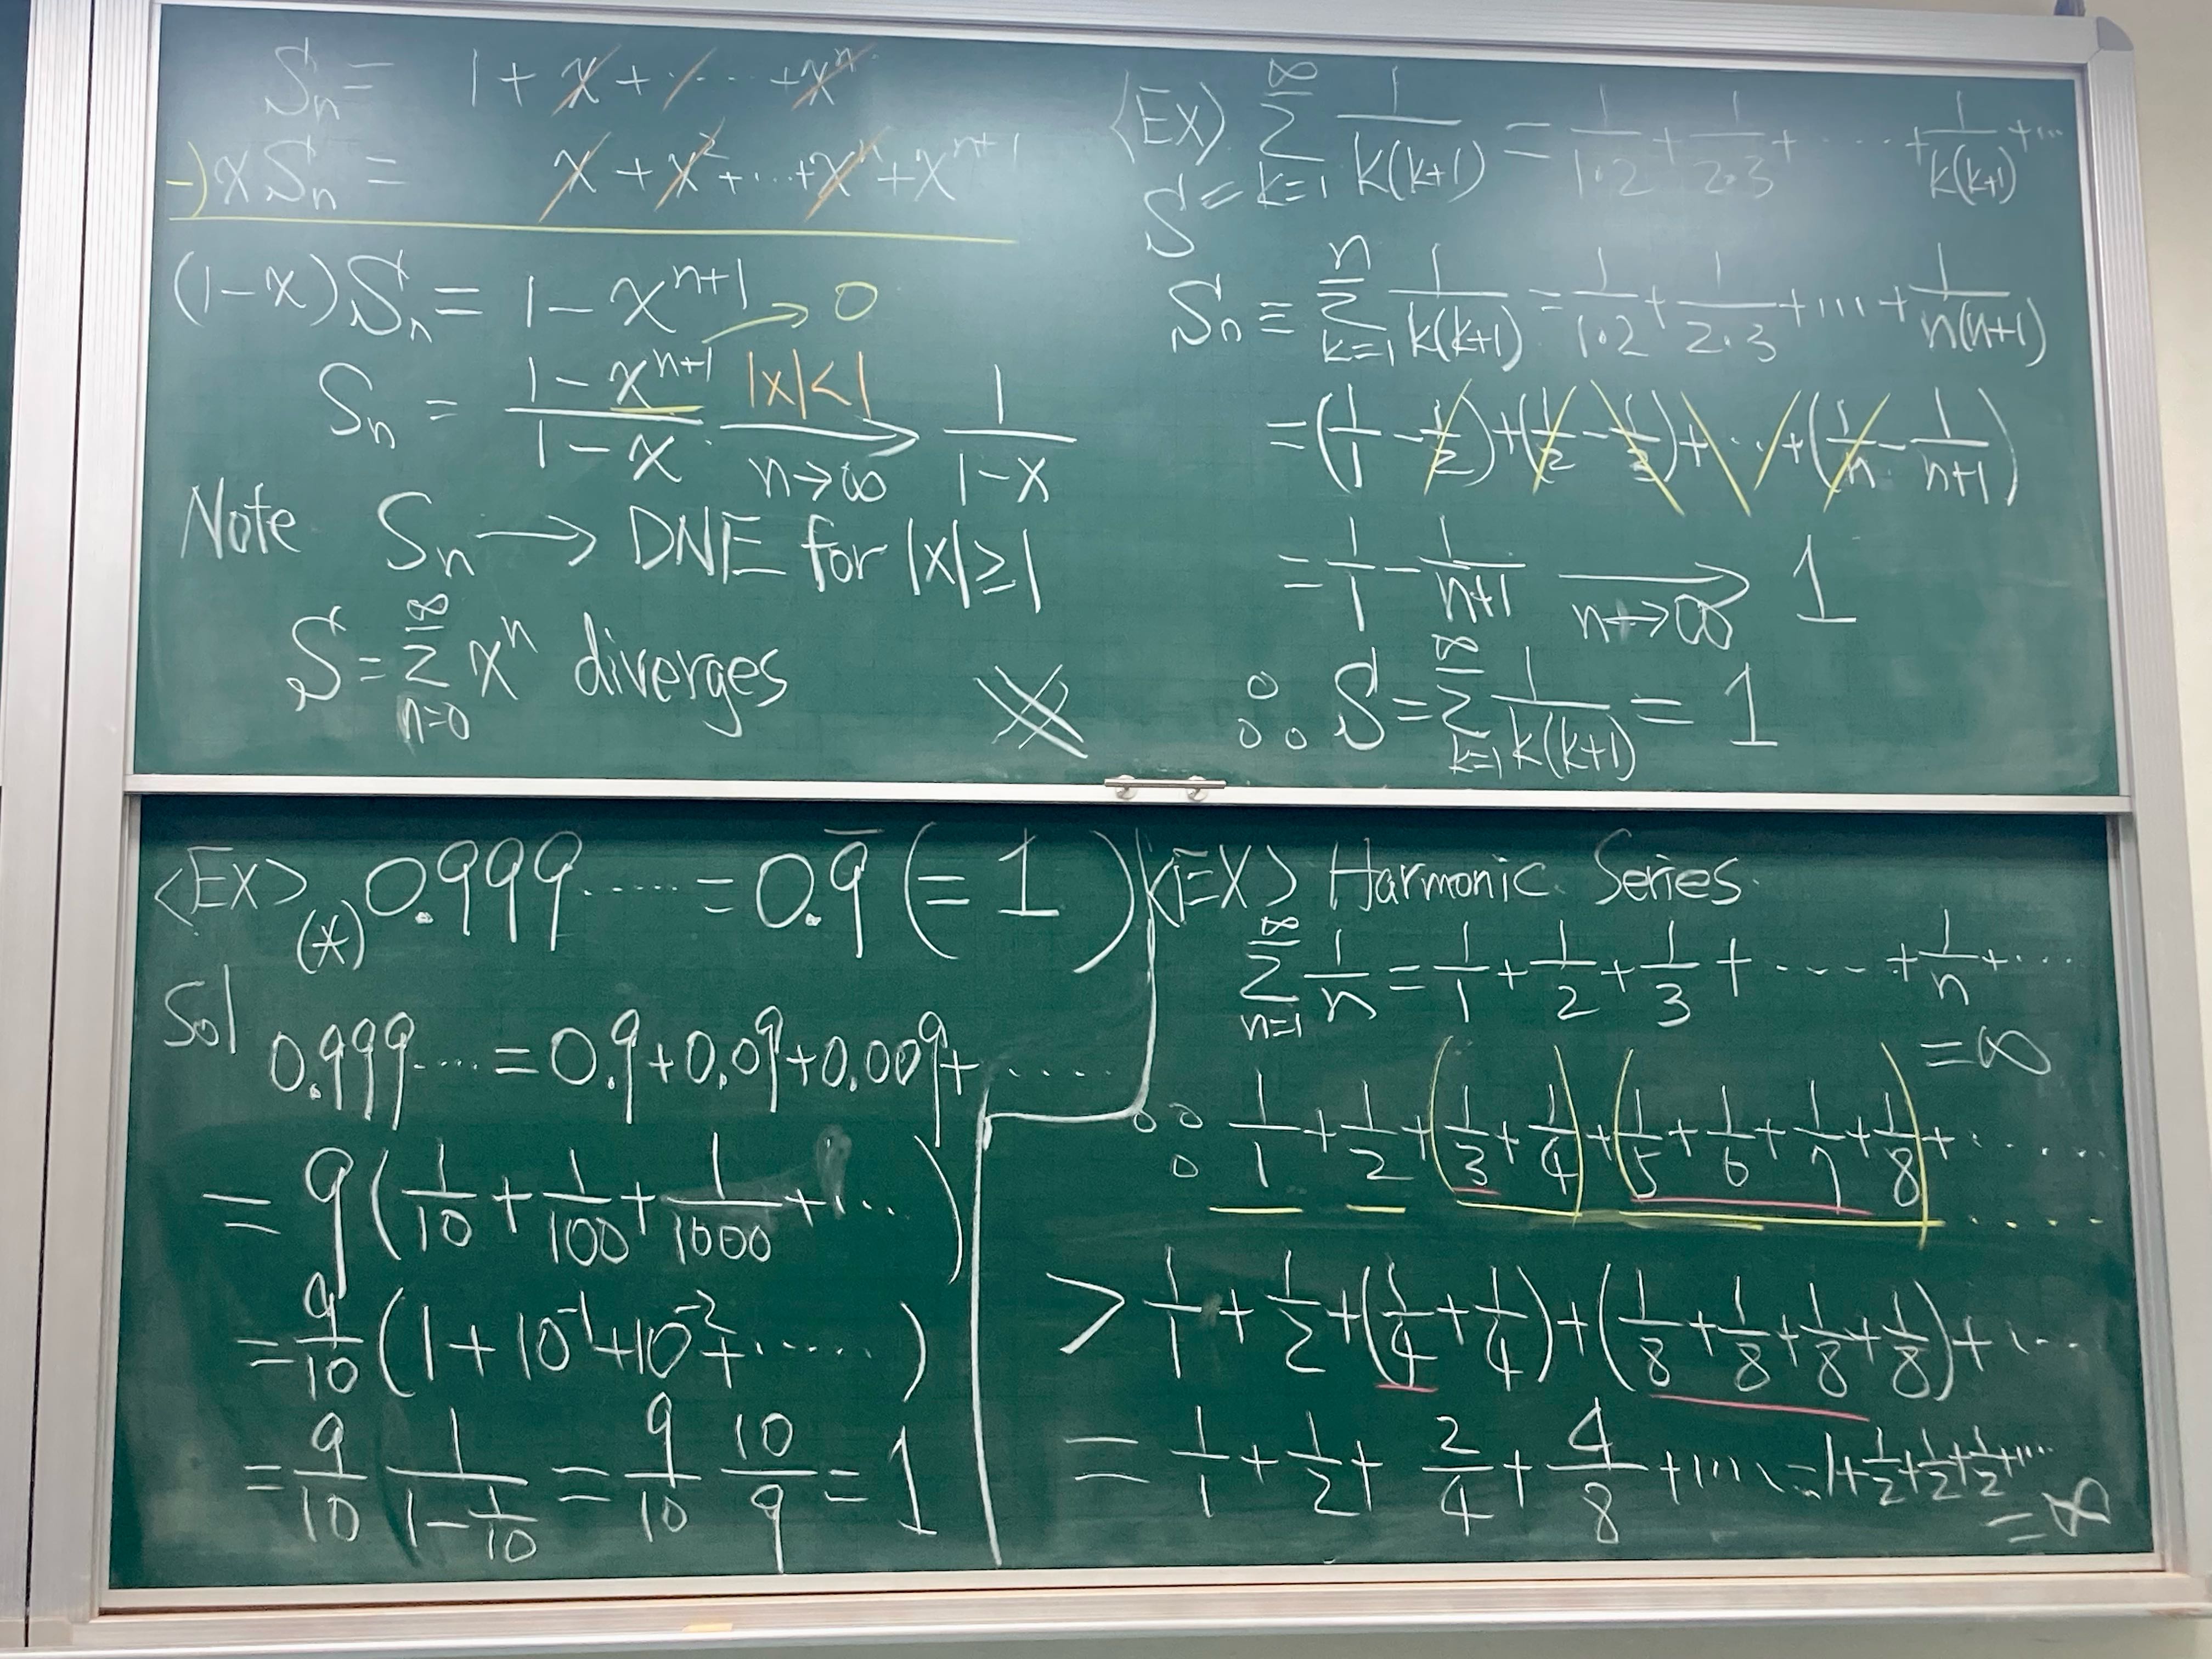 Sₙ = 1 + x + ⋯ + xⁿ
-) xSₙ = x + x² + ⋯ + xⁿ + xⁿ⁺¹
(1-x)Sₙ = 1 - xⁿ⁺¹ → 0
Sₙ = (1 - xⁿ⁺¹)/(1 - x) —|x|<1, n→∞→ 1/(1-x)
Note Sₙ → DNE for |x| ≥ 1
S = ∑_{n=0}^{∞} xⁿ diverges
<Ex> S = ∑_{k=1}^{∞} 1/(k(k+1)) = 1/(1·2) + 1/(2·3) + ⋯ + 1/(k(k+1)) + ⋯
Sₙ ≡ ∑_{k=1}^{n} 1/(k(k+1)) = 1/(1·2) + 1/(2·3) + ⋯ + 1/(n(n+1))
= (1/1 - 1/2) + (1/2 - 1/3) + ⋯ + (1/n - 1/(n+1))
= 1/1 - 1/(n+1) —n→∞→ 1
∴ S = ∑_{k=1}^{∞} 1/(k(k+1)) = 1
<Ex> (*) 0.999⋯ = 0.9̅ (= 1)
Sol
0.999⋯ = 0.9 + 0.09 + 0.009 + ⋯
= 9(1/10 + 1/100 + 1/1000 + ⋯)
= 9/10 (1 + 10⁻¹ + 10⁻² + ⋯)
= 9/10 1/(1 - 1/10) = 9/10 10/9 = 1
<EX> Harmonic Series
∑_{n=1}^{∞} 1/n = 1/1 + 1/2 + 1/3 + ⋯ + 1/n + ⋯
= ∞
∵ 1/1 + 1/2 + (1/3 + 1/4) + (1/5 + 1/6 + 1/7 + 1/8) + ⋯
> 1/1 + 1/2 + (1/4 + 1/4) + (1/8 + 1/8 + 1/8 + 1/8) + ⋯
= 1/1 + 1/2 + 2/4 + 4/8 + ⋯ = 1 + 1/2 + 1/2 + 1/2 + ⋯
= ∞